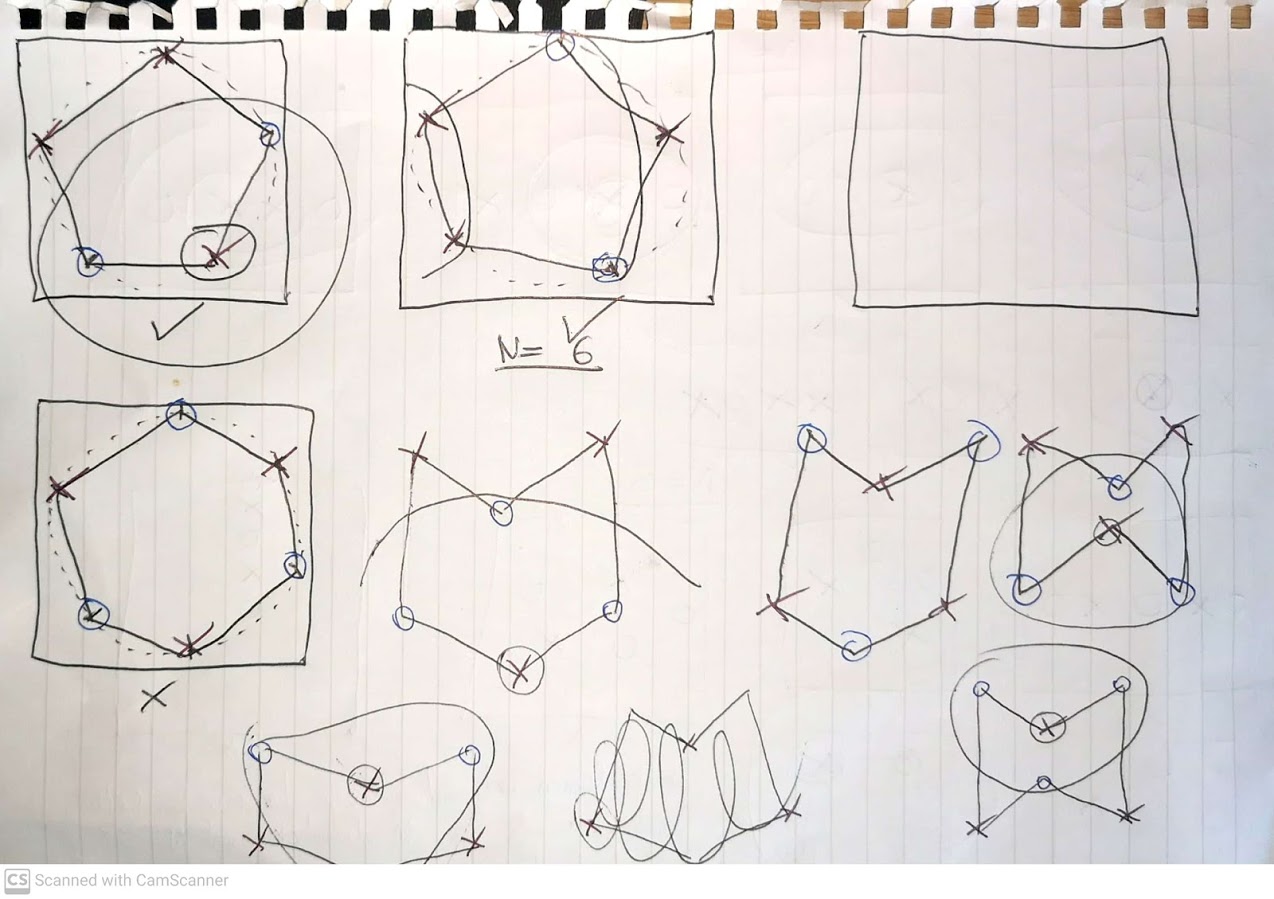 N= 6
CS Scanned with CamScanner